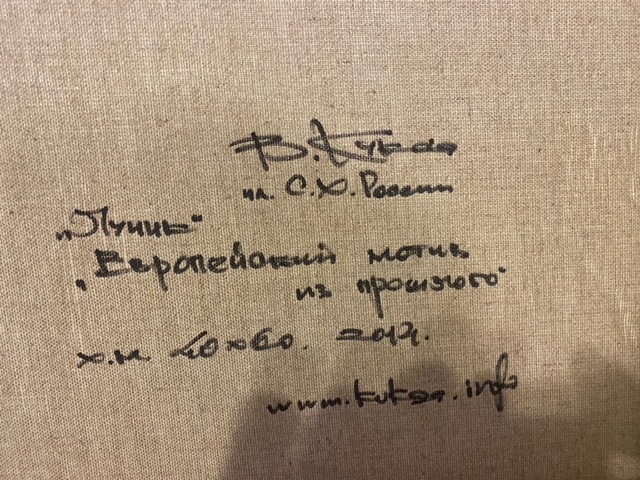 В. Кукса
чл. С.Х. России
„Пучик"
„Европейский мотив
из прошлого"
х.м. 40х60. 2014.
www.kuksa.info